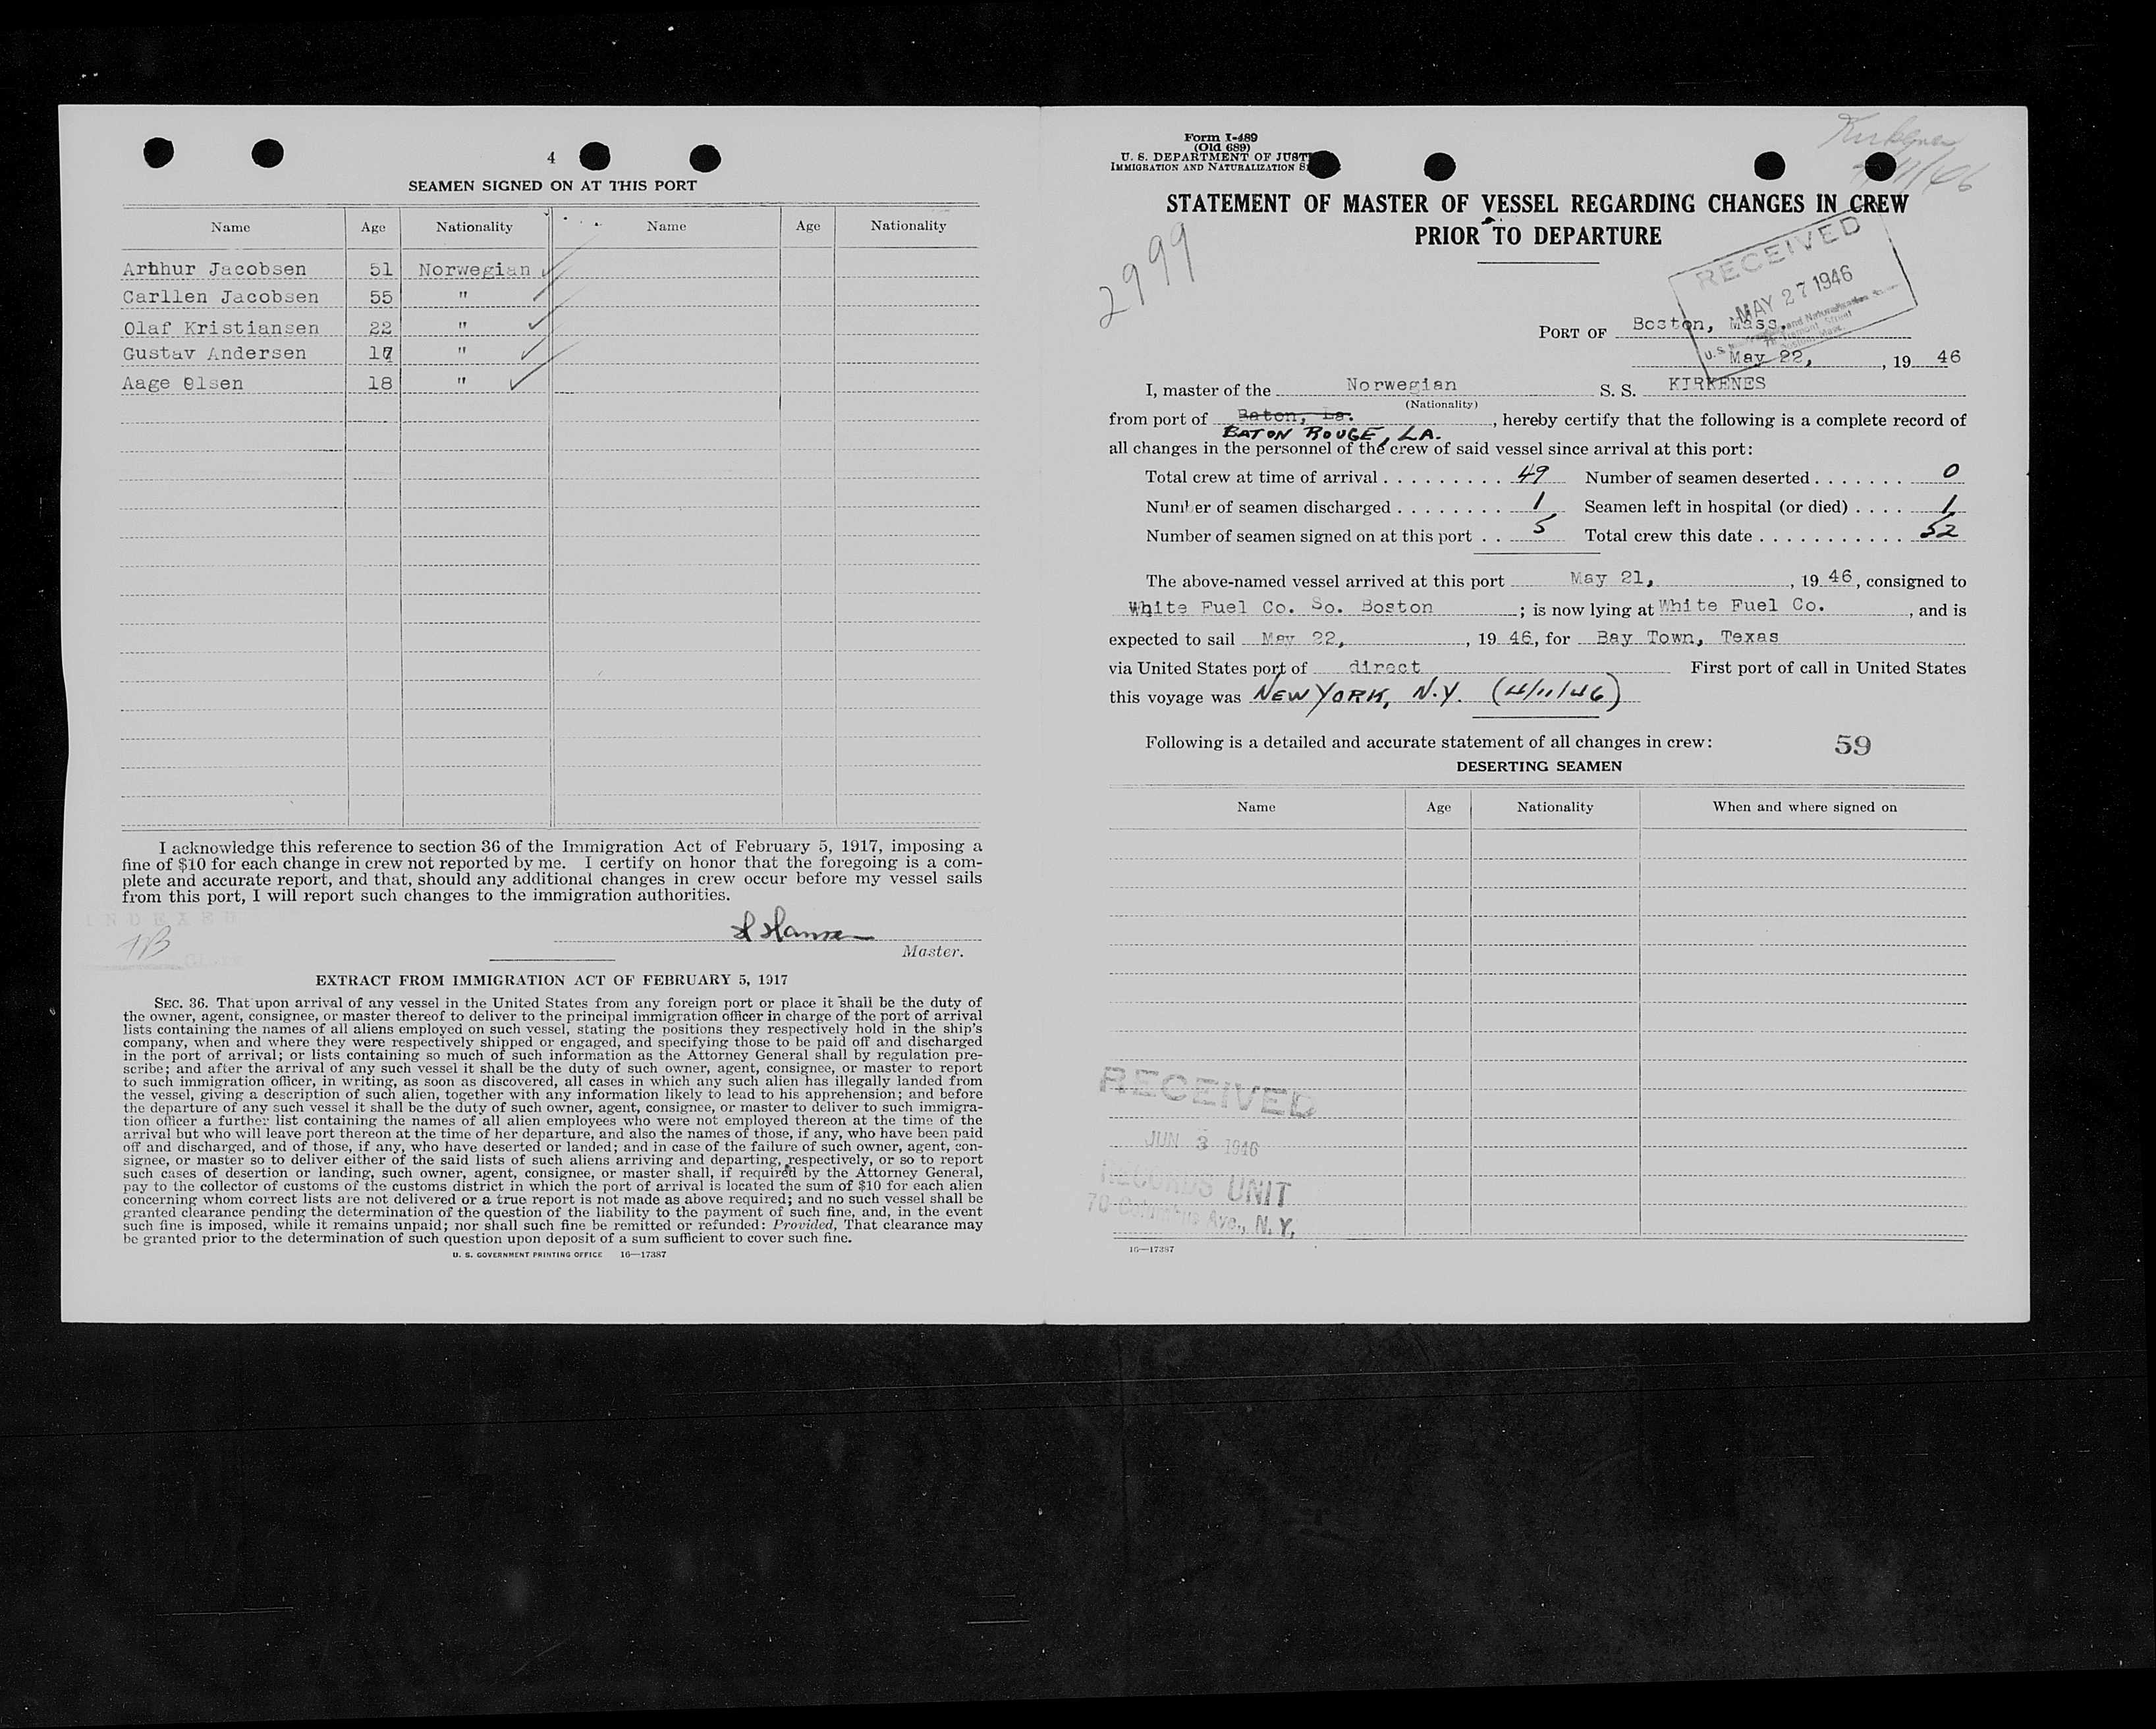 4
SEAMEN SIGNED ON AT THIS PORT
Name Age Nationality Name Age Nationality
Arthur Jacobsen 51 Norwegian
Carllen Jacobsen 55 "
Olaf Kristiansen 22 "
Gustav Andersen 17 "
Aage Olsen 18 "
I acknowledge this reference to section 36 of the Immigration Act of February 5, 1917, imposing a
fine of $10 for each change in crew not reported by me. I certify on honor that the foregoing is a com-
plete and accurate report, and that, should any additional changes in crew occur before my vessel sails
from this port, I will report such changes to the immigration authorities.
INDEXED
Hansen
Master.
EXTRACT FROM IMMIGRATION ACT OF FEBRUARY 5, 1917
SEC. 36. That upon arrival of any vessel in the United States from any foreign port or place it shall be the duty of
the owner, agent, consignee, or master thereof to deliver to the principal immigration officer in charge of the port of arrival
lists containing the names of all aliens employed on such vessel, stating the positions they respectively hold in the ship's
company, when and where they were respectively shipped or engaged, and specifying those to be paid off and discharged
in the port of arrival; or lists containing so much of such information as the Attorney General shall by regulation pre-
scribe; and after the arrival of any such vessel it shall be the duty of such owner, agent, consignee, or master to report
to such immigration officer, in writing, as soon as discovered, all cases in which any such alien has illegally landed from
the vessel, giving a description of such alien, together with any information likely to lead to his apprehension; and before
the departure of any such vessel it shall be the duty of such owner, agent, consignee, or master to deliver to such immigra-
tion officer a further list containing the names of all alien employees who were not employed thereon at the time of the
arrival but who will leave port thereon at the time of her departure, and also the names of those, if any, who have been paid
off and discharged, and of those, if any, who have deserted or landed; and in case of the failure of such owner, agent, con-
signee, or master so to deliver either of the said lists of such aliens arriving and departing, respectively, or so to report
such cases of desertion or landing, such owner, agent, consignee, or master shall, if required by the Attorney General,
pay to the collector of customs of the customs district in which the port of arrival is located the sum of $10 for each alien
concerning whom correct lists are not delivered or a true report is not made as above required; and no such vessel shall be
granted clearance pending the determination of the question of the liability to the payment of such fine, and, in the event
such fine is imposed, while it remains unpaid; nor shall such fine be remitted or refunded: Provided, That clearance may
be granted prior to the determination of such question upon deposit of a sum sufficient to cover such fine.
U. S. GOVERNMENT PRINTING OFFICE 16—17387
Form I-489
(Old 689)
U. S. DEPARTMENT OF JUST
IMMIGRATION AND NATURALIZATION S
STATEMENT OF MASTER OF VESSEL REGARDING CHANGES IN CREW
PRIOR TO DEPARTURE
2999
RECEIVED
MAY 27 1946
PORT OF Boston, Mass.
May 22, , 19 46
I, master of the Norwegian S. S. KIRKENES
(Nationality)
from port of Baton, La. , hereby certify that the following is a complete record of
BATON ROUGE, LA.
all changes in the personnel of the crew of said vessel since arrival at this port:
Total crew at time of arrival . . . . . . . . . 49 Number of seamen deserted . . . . . . . 0
Number of seamen discharged . . . . . . . . 1 Seamen left in hospital (or died) . . . . 1
Number of seamen signed on at this port . . 5 Total crew this date . . . . . . . . . . . 52
The above-named vessel arrived at this port May 21, , 19 46, consigned to
White Fuel Co. So. Boston ; is now lying at White Fuel Co. , and is
expected to sail May 22, , 19 46, for Bay Town, Texas
via United States port of direct First port of call in United States
this voyage was NEW YORK, N.Y. (4/11/46)
Following is a detailed and accurate statement of all changes in crew: 59
DESERTING SEAMEN
Name Age Nationality When and where signed on
RECEIVED
JUN 3 1946
RECORDS UNIT
70 Columbus Ave., N. Y.
16—17387